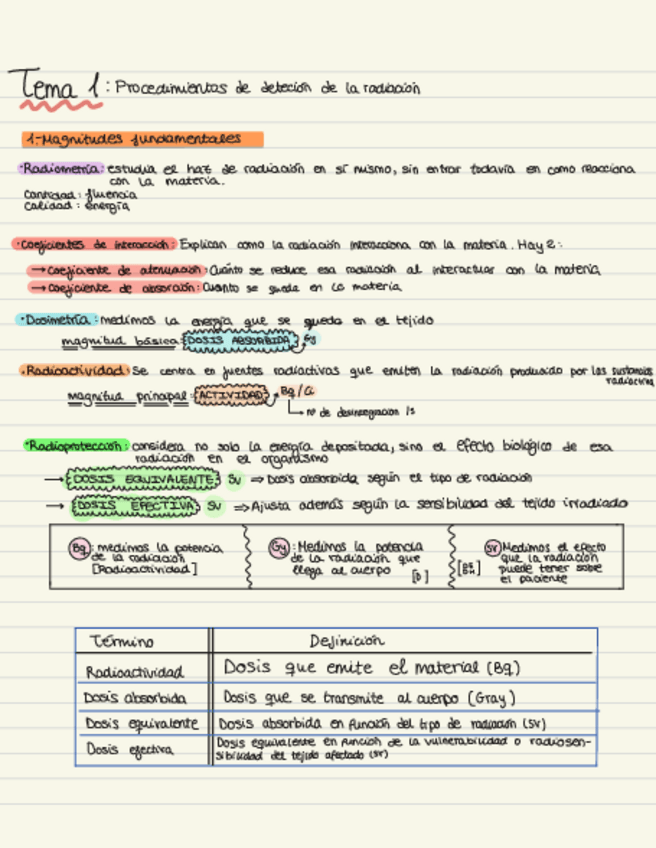 Tema 1: Procedimientos de deteción de la radiación
1-Magnitudes fundamentales
·Radiometría: estudia el haz de radiación en sí mismo, sin entrar todavía en como reacciona
con la materia.
Cantidad: fluencia
Calidad: energía
·Coeficientes de interacción: Explican como la radiación interacciona con la materia. Hay 2:
→ Coeficiente de atenuación: Cuánto se reduce esa radiación al interactuar con la materia
→ Coeficiente de absorción: Cuanto se queda en la materia
·Dosimetría: medimos la energía que se queda en el tejido
magnitud básica: DOSIS ABSORBIDA Gy
·Radioactividad: Se centra en fuentes radiactivas que emiten la radiación producida por las sustancias
radiactivas
magnitud principal: ACTIVIDAD Bq/Ci
nº de desintegración /s
·Radioprotección: considera no solo la energía depositada, sino el efecto biológico de esa
radiación en el organismo
→ DOSIS EQUIVALENTE Sv ⇒ Dosis absorbida según el tipo de radiación
→ DOSIS EFECTIVA Sv ⇒ Ajusta además según la sensibilidad del tejido irradiado
Bq: medimos la potencia
de la radiación
[Radioactividad]
Gy: Medimos la potencia
de la radiación que
llega al cuerpo [D]
Sv Medimos el efecto
que la radiación
puede tener sobre
el paciente
Término Definición
Radioactividad Dosis que emite el material (Bq)
Dosis absorbida Dosis que se transmite al cuerpo (Gray)
Dosis equivalente Dosis absorbida en función del tipo de radiación (SV)
Dosis efectiva Dosis equivalente en función de la vulnerabilidad o radiosen-
sibilidad del tejido afectado (SV)